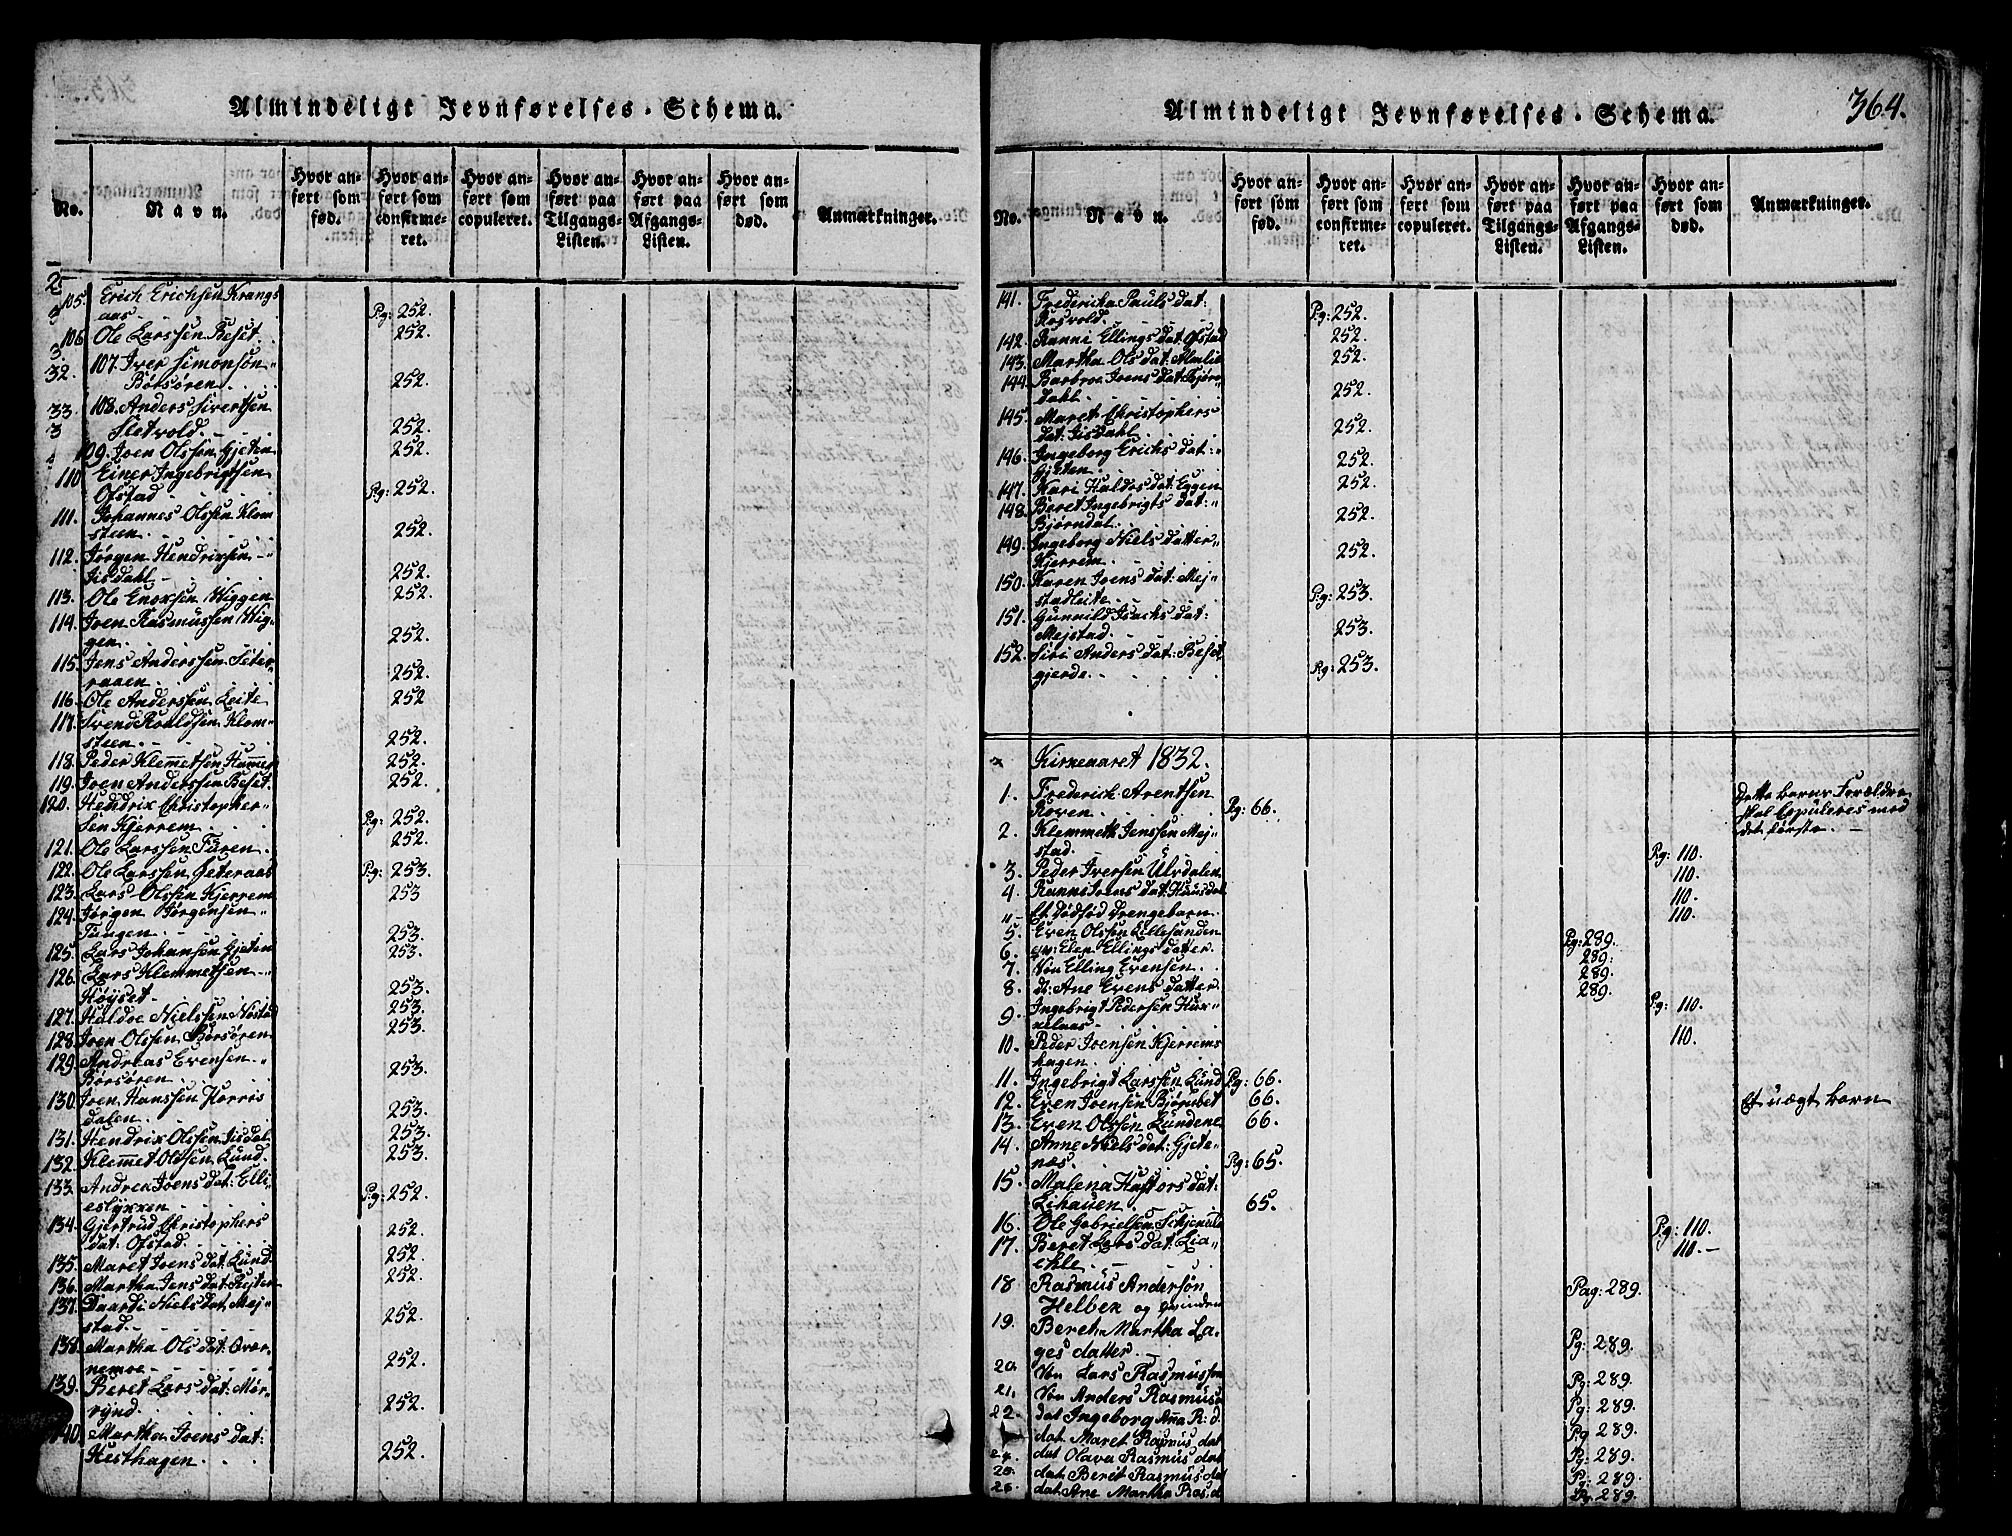 Almindeligt Jevnførelses-Schema.
No.
Navn.
Hvor anført som fød.
Hvor anført som confirmeret.
Hvor anført som copuleret.
Hvor anført paa Tilgangs-Listen.
Hvor anført paa Afgangs-Listen.
Hvor anført som død.
Anmærkninger.
105. Erich Erichsen Krangs
aas. Pg: 252.
106. Ole Larssen Beset. 252.
107. Iver Simonsön
Börsören. 252.
108. Anders Sivertsen
Sletvold. 252.
109. Joen Olssen Gjeten 252.
110 Einer Ingebrigtsen
Ofstad Pg: 252.
111. Johannes Olssen Klem
steen. 252.
112. Jørgen Hendrixsen
Jisdahl 252.
113. Ole Enoxsen Wiggen 252.
114. Joen Rasmussen Wig-
gen. 252.
115. Jens Anderssen Seter-
raaen. 252.
116. Ole Anderssen Leite 252
117. Svend Roaldsen Klem-
steen. 252.
118. Peder Klemmetsen Hamer 252.
119. Joen Anderssen Beset. 252.
120. Hendrix Christopher-
sen Kjerrem Pg: 252.
121. Ole Larssen Furen. 252.
122. Ole Larssen Seteraas Pg: 253.
123. Lars Olssen Kjerrem 253
124. Jørgen Jørgensen
Tangen. 253.
125. Lars Johansen Gjeten 253.
126. Lars Klemmetsen
Höyset. 253.
127. Haldoe Nielssen Nostad 253.
128. Joen Olssen Börsören. 253.
129. Andreas Evensen
Börsören. 253.
130. Joen Hanssen Horris
dalen. 253.
131. Hendrix Olssen Jisdal. 253.
132. Klemet Oldsen Lund. 253.
133. Andrea Joens dat: Elli-
eslyxxen. Pg: 252.
134. Gjertrud Christophers
dat: Ofstad. 252.
135. Maret Joens dat: Lund. 252.
136. Martha Jens dat: Resten 252.
137. Daardi Niels dat: Mej-
stad. 252.
138. Martha Ols dat: Over-
nemoe 252.
139. Beret Lars dat: Mör-
rynd. 252.
140. Martha Joens dat:
Hesthagen. 252.
Almindeligt Jevnførelses-Schema.
364.
No.
Navn.
Hvor anført som fød.
Hvor anført som confirmeret.
Hvor anført som copuleret.
Hvor anført paa Tilgangs-Listen.
Hvor anført paa Afgangs-Listen.
Hvor anført som død.
Anmærkninger.
141. Fredericha Pauls dat:
Rosvold. Pg: 252.
142. Ranni Ellings dat: Ofstad 252.
143. Martha Ols dat: Almlie 252.
144. Barbroe Joens dat: Bjørn
dahl. 252.
145. Maret Christophers
dat: Jisdahl. 252.
146. Ingeborg Erichs dat:
Gjeten. 252.
147. Kari Haldos dat: Eggen 252.
148. Beret Ingebrigts dat:
Bjørndal. 252.
149. Ingeborg Niels datter
Kjerrem. 252.
150. Karen Joens dat: Mej-
stadleite. Pg: 253.
151. Gunnild Isachs dat:
Mejstad. 253.
152. Siri Anders dat: Beset
gjerde. Pg: 253.
Kirkeaaret 1832.
1. Frederich Arentsen
Roven. Pg: 66. Dette barns Forældre
skal copuleres med
det første.
2. Klemmeth Jenssen Mej-
stad. Pg: 110.
3. Peder Iversen Ulvdalen 110.
4. Ranni Joens dat: Huusdal 110.
" Et dødfød Drengebarn. 110.
5. Even Olssen Lillesanden Pg: 289.
6. qv: Elen Ellings datter. 289.
7. Søn Elling Evensen. 289.
8. d: Ane Evens datter 289.
9. Ingebrigt Pedersen Hux-
nelaas. Pg: 110.
10. Peder Joensen Kjerrems
hagen. 110.
11. Ingebrigt Larssen Lund Pg: 66.
12. Even Joensen Bjørnbet 66. Et uægt barn
13. Even Olssen Lundene 66.
14. Anne Niels dat: Gjete-
næs. Pg: 65.
15. Malena Hastors dat:
Lihauen. 65.
16. Ole Gabrielsen Schjenald Pg: 110.
17. Beret Lars dat: Lia-
ekle. 110.
18 Rasmus Andersøn
Helbek og qvinden Pag: 289.
19. Beret Martha La-
ges datter. Pg: 289.
20. Søn Lars Rasmussen Pg: 289.
21. Søn Anders Rasmusen Pg: 289.
22. dat Ingeborg Ana R: d. Pg 289.
dat Maret Rasmus dat Pg: 289.
24. dat Olava Rasmus dat Pg: 289.
25. dat Berit Rasmus dat Pg: 289.
26. dat Ane Martha Ras: d Pg: 289.